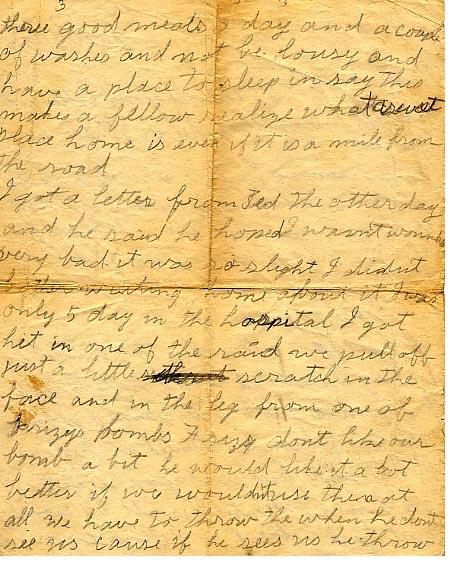 3
three good meals a day and a couple
of washes and not be lousy and
have a place to sleep in say this
makes a fellow realize what a sweet
place home is even if it is a mile from
the road
I got a letter from Zed the other day
and he said he hoped I wasnt wounded
very bad it was so slight I didnt
bother writing home about it I was
only 5 day in the hospital I got
hit in one of the raid we pull off
just a little scratch in the
face and in the leg from one of
Frizys bombs Frizy dont like our
bomb a bit he would like it a lot
better if we wouldnt use them at
all we have to throw the when he dont
see us cause if he sees us he throw